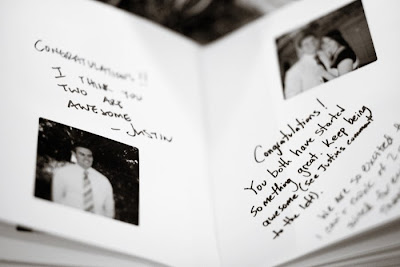 CONGRATULATIONS!!
I THINK YOU
TWO ARE
AWESOME
- JUSTIN
Congratulations!
You both have started
something great. Keep being
awesome (see Justin's comment
to the left).
We are so excited
I can't